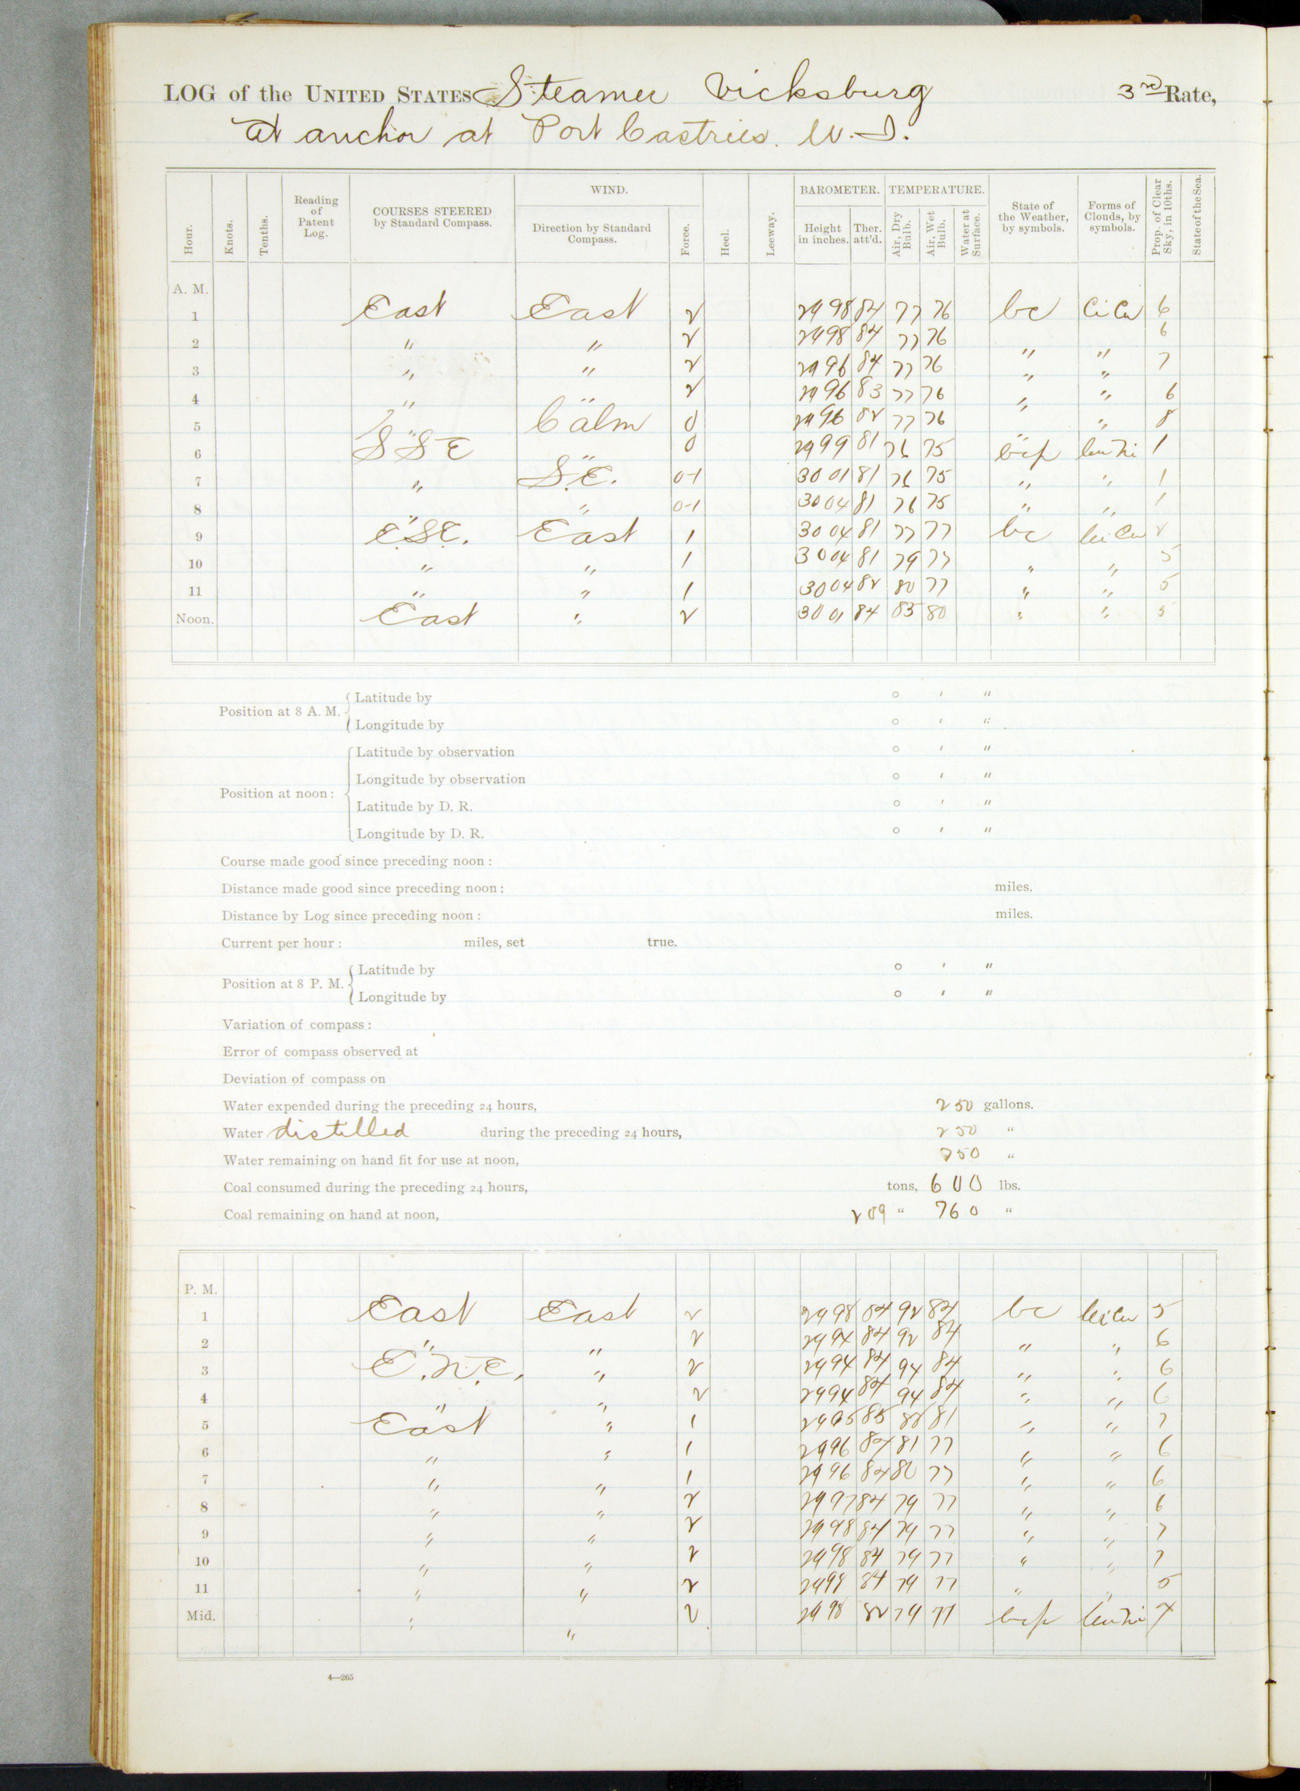 LOG of the UNITED STATES Steamer Vicksburg 3rd Rate,
At anchor at Port Castries. W. I.
Hour. Knots. Tenths. Reading of Patent Log. COURSES STEERED by Standard Compass. WIND. Direction by Standard Compass. Force. Heel. Leeway. BAROMETER. Height in inches. Ther. att'd. TEMPERATURE. Air, Dry Bulb. Air, Wet Bulb. Water at Surface. State of the Weather, by symbols. Forms of Clouds, by symbols. Prop. of Clear Sky, in 10ths. State of the Sea.
A. M.
1 East East 2 29 98 84 77 76 bc Ci Cu 6
2 " " 2 29 98 84 77 76 " " 6
3 " " 2 29 96 84 77 76 " " 7
4 " " 2 29 96 83 77 76 " " 6
5 " Calm 0 29 96 82 77 76 " " 8
6 SSE " 0 29 99 81 76 75 bcp Cu Ni 1
7 " S.E. 0-1 30 01 81 76 75 " " 1
8 " " 0-1 30 04 81 76 75 " " 1
9 E.S.E. East 1 30 04 81 77 77 bc Ci Cu 2
10 " " 1 30 04 81 79 77 " " 5
11 " " 1 30 04 82 80 77 " " 5
Noon. East " 2 30 01 84 83 80 " " 5
Position at 8 A. M. Latitude by ° ' "
Longitude by ° ' "
Position at noon: Latitude by observation ° ' "
Longitude by observation ° ' "
Latitude by D. R. ° ' "
Longitude by D. R. ° ' "
Course made good since preceding noon:
Distance made good since preceding noon: miles.
Distance by Log since preceding noon: miles.
Current per hour: miles, set true.
Position at 8 P. M. Latitude by ° ' "
Longitude by ° ' "
Variation of compass:
Error of compass observed at
Deviation of compass on
Water expended during the preceding 24 hours, 250 gallons.
Water distilled during the preceding 24 hours, 250 "
Water remaining on hand fit for use at noon, "
Coal consumed during the preceding 24 hours, tons, 600 lbs.
Coal remaining on hand at noon, 209 " 760 "
P. M.
1 East East 2 29 98 84 92 84 bc Ci Cu 5
2 " " 2 29 94 84 92 84 " " 6
3 E.N.E. " 2 29 94 84 94 84 " " 6
4 " " 2 29 94 84 94 84 " " 6
5 East " 1 29 95 85 88 81 " " 7
6 " " 1 29 96 84 81 77 " " 6
7 " " 1 29 96 84 80 77 " " 6
8 " " 2 29 97 84 79 77 " " 6
9 " " 2 29 98 84 79 77 " " 7
10 " " 2 29 98 84 79 77 " " 7
11 " " 2 29 98 84 79 77 " " 5
Mid. " " 2 29 98 82 79 77 bcp Cu Ni 4
4—265